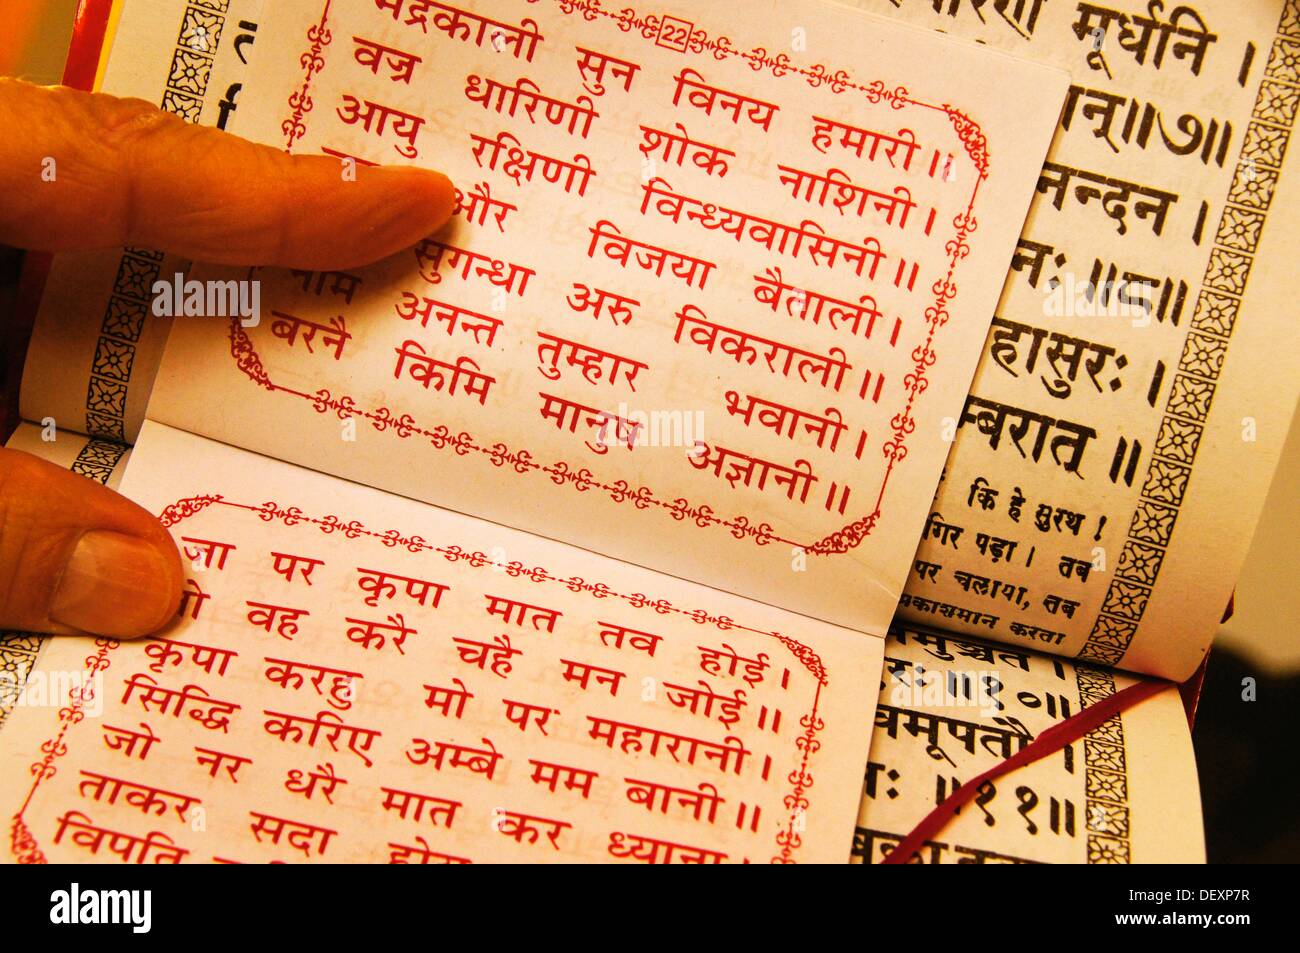 22
भद्रकाली सुन विनय हमारी॥
वज्र धारिणी शोक नाशिनी।
आयु रक्षिणी विन्ध्यवासिनी॥
और विजया बैताली।
सुगन्धा अरु विकराली॥
नाम अनन्त तुम्हार भवानी।
बरनै किमि मानुष अज्ञानी॥
जा पर कृपा मात तव होई।
वह करै चहै मन जोई॥
कृपा करहु मो पर महारानी।
सिद्धि करिए अम्बे मम बानी॥
जो नर धरै मात कर ध्याना
ताकर सदा होय
विपति
मूर्धनि।
॥७॥
नन्दन।
॥८॥
हासुरः।
म्बरात्॥
कि हे सुरथ!
गिर पड़ा। तब
पर चलाया, तब
काशमान करता
॥१०॥
॥११॥
alamy
Image ID: DEXP7R
www.alamy.com